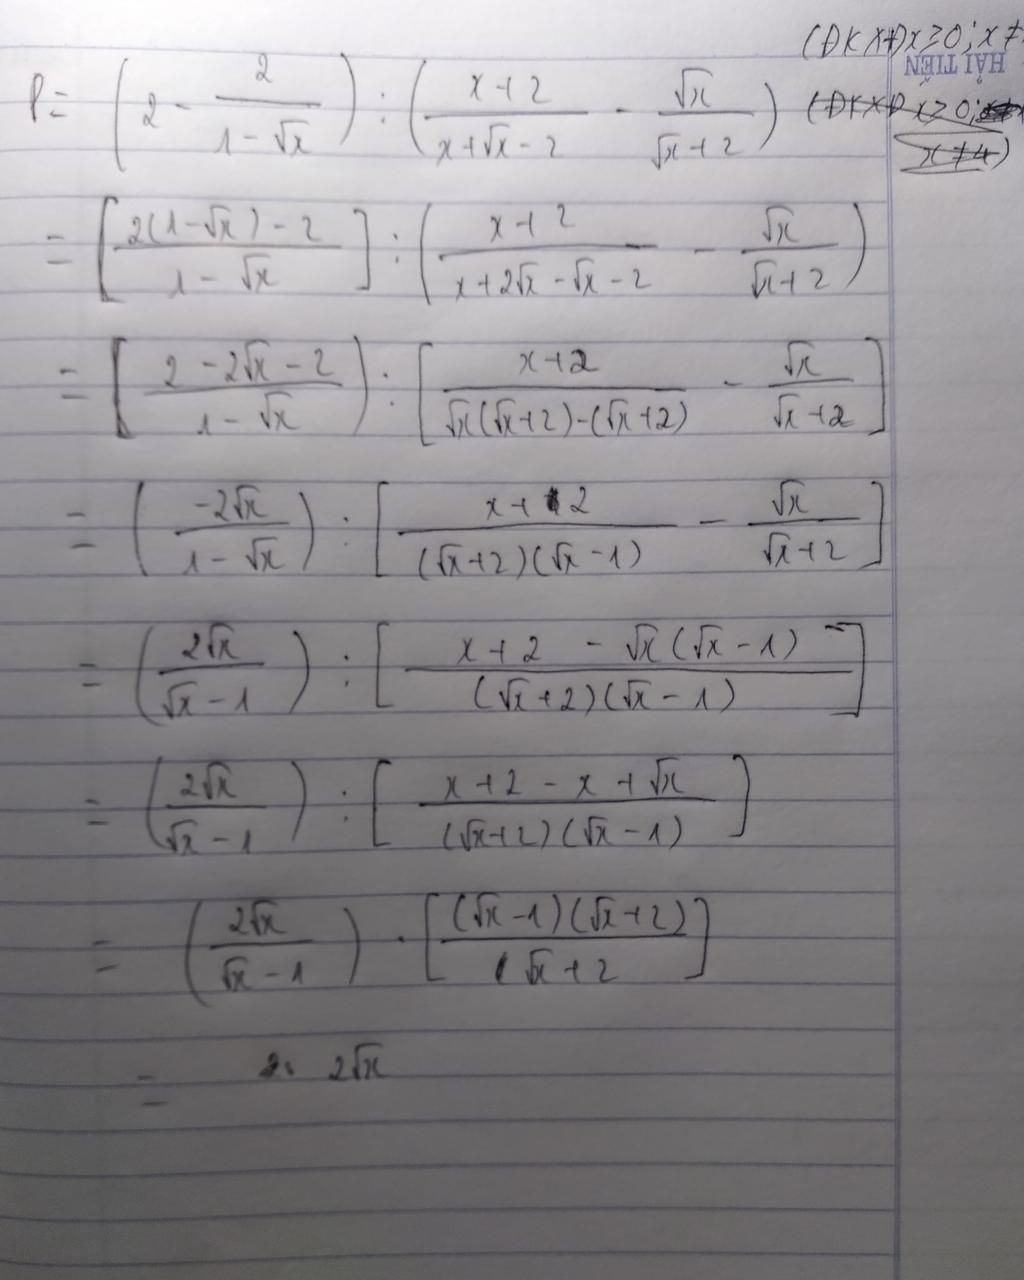 (ĐKXĐ x ≥ 0; x ≠
HẢI TIẾN
P = (2 - 2/(1 - √x)) : ((x + 2)/(x + √x - 2) - √x/(√x + 2)) (ĐKXĐ x ≥ 0;
x ≠ 4)
= [(2(1 - √x) - 2)/(1 - √x)] : ((x + 2)/(x + 2√x - √x - 2) - √x/(√x + 2))
= [(2 - 2√x - 2)/(1 - √x)) : [(x + 2)/(√x(√x + 2) - (√x + 2)) - √x/(√x + 2)]
= (-2√x/(1 - √x)) : [(x + 2)/((√x + 2)(√x - 1)) - √x/(√x + 2)]
= (2√x/(√x - 1)) : [(x + 2 - √x(√x - 1))/((√x + 2)(√x - 1))]
= (2√x/(√x - 1)) : [(x + 2 - x + √x)/((√x + 2)(√x - 1))]
= (2√x/(√x - 1)) · [((√x - 1)(√x + 2))/(√x + 2)]
= 2√x